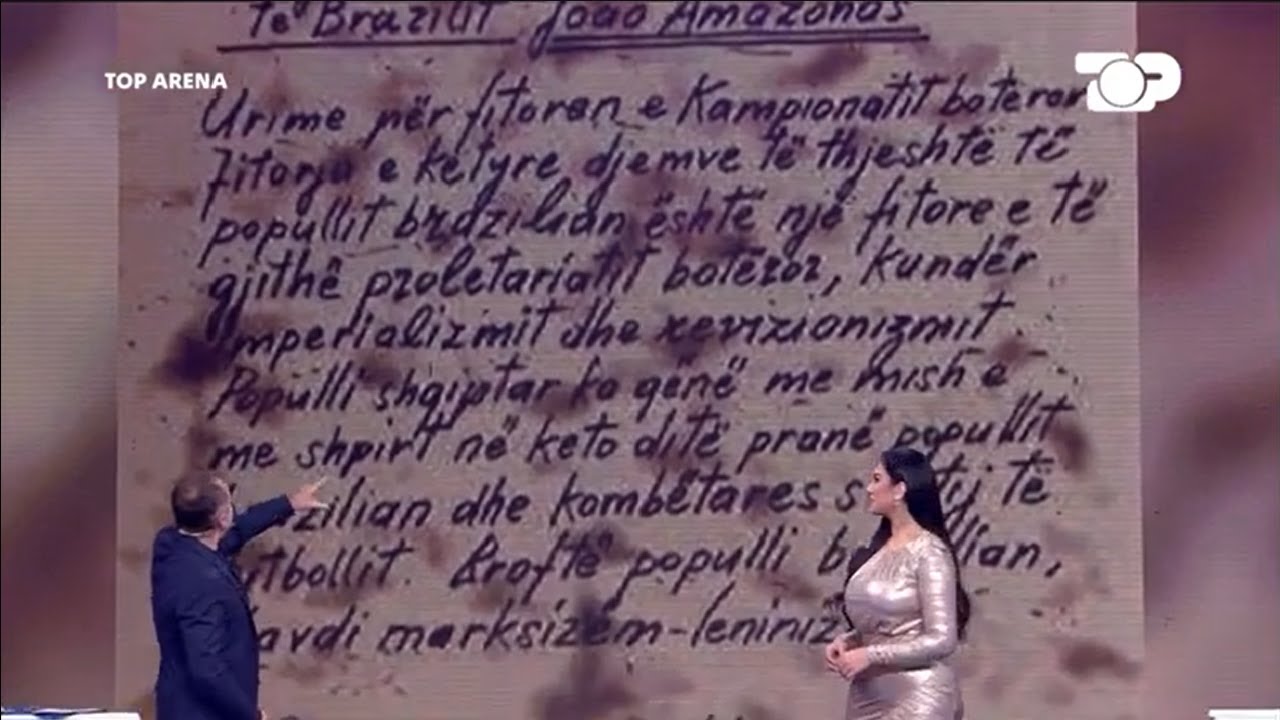 të Brazilit João Amazonas
TOP ARENA
TOP
Urime për fitoren e Kampionatit boteror
Fitorja e ketyre djemve të thjeshtë të
popullit brazilian është një fitore e të
gjithë proletariatit botëror, kundër
imperializmit dhe revizionizmit
Populli shqiptar ka qenë me mish e
me shpirt në keto ditë pranë popullit
brazilian dhe kombëtares së tij të
futbollit. Rroftë populli brazilian,
lavdi marksizëm-leniniz